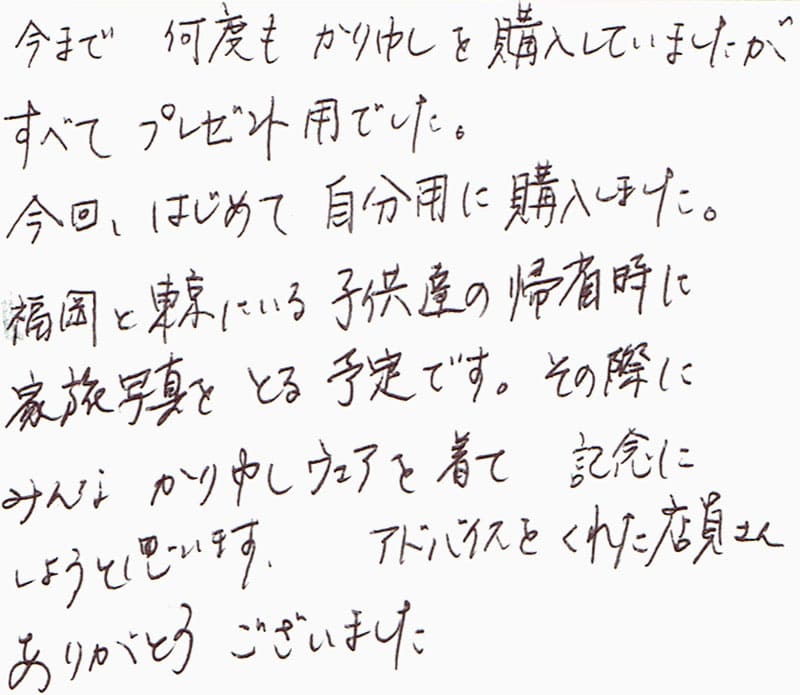 今まで 何度も かりゆしを購入していましたが
すべて プレゼント用でした。
今回、はじめて 自分用に購入しました。
福岡と東京にいる 子供達の帰省時に
家族写真を とる 予定です。その際に
みんな かりゆしウェアを着て 記念に
しようと思います。 アドバイスをくれた店員さん
ありがとう ございました